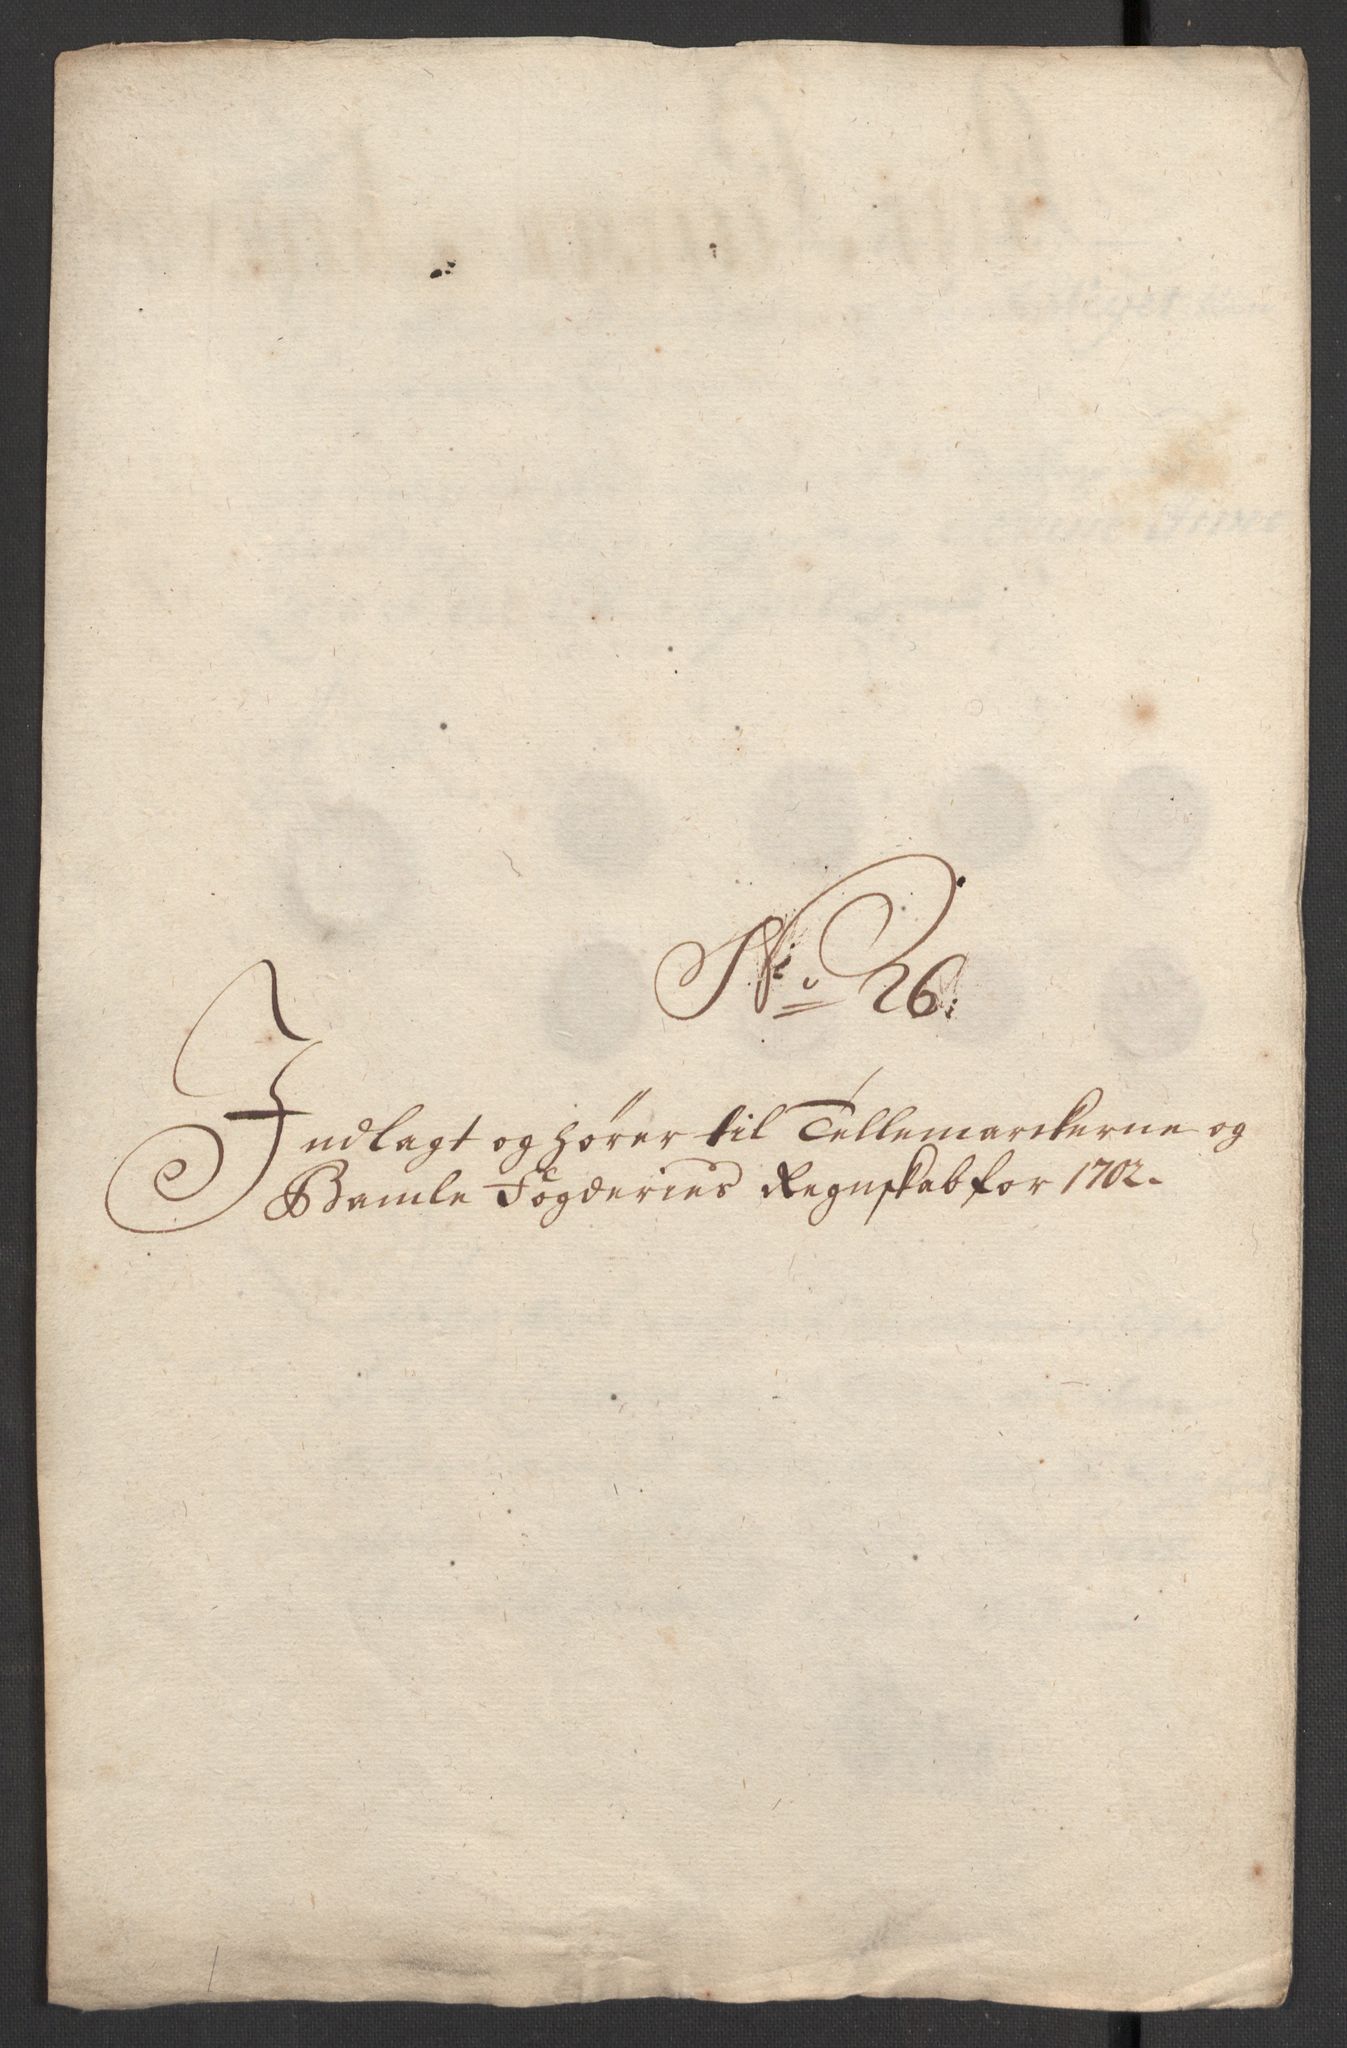 No 26.
Indlagt og hører til Tellemarckerne og
Bamle Fogderies Regnskab for 1702.